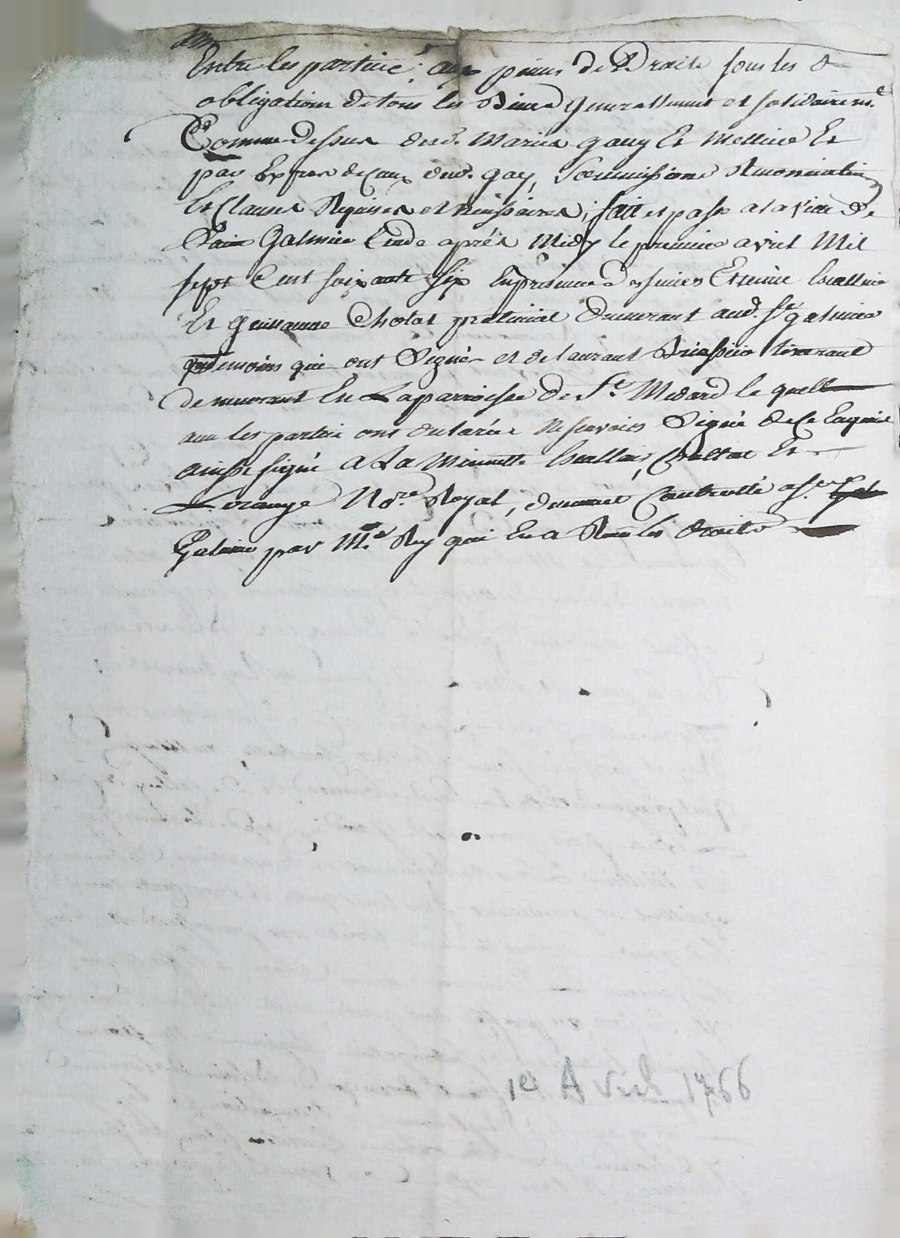 Entre les parties, aux peines de Droits sous les
obligations de tous les Biens Generallement et solidairem.t
Comme dessus desd. Mariés gauy Et Mellier Et
par Expres de Ceux dud. gay, Soumissions Renonciations
Et Clauses Requises et necessaires, fait et passe a la ville de
Saint Galmier Etude après Midy le premier avril Mil
sept Cent soixante six En presence de Estienne
Et guillaume Cholat praticien demeurant aud. St galmier
temoins qui ont Signé et de laurant tisserand
demeurant En La parroisse de St Medard le quell
avec les parties ont declarée Ne scavoir Signé de Ce Enquis
ainsi signé a La Minutte Et
No.re Royal, Controllé a St
Galmier par M.e Rey qui En a Reçu les droits
1er Avril 1766